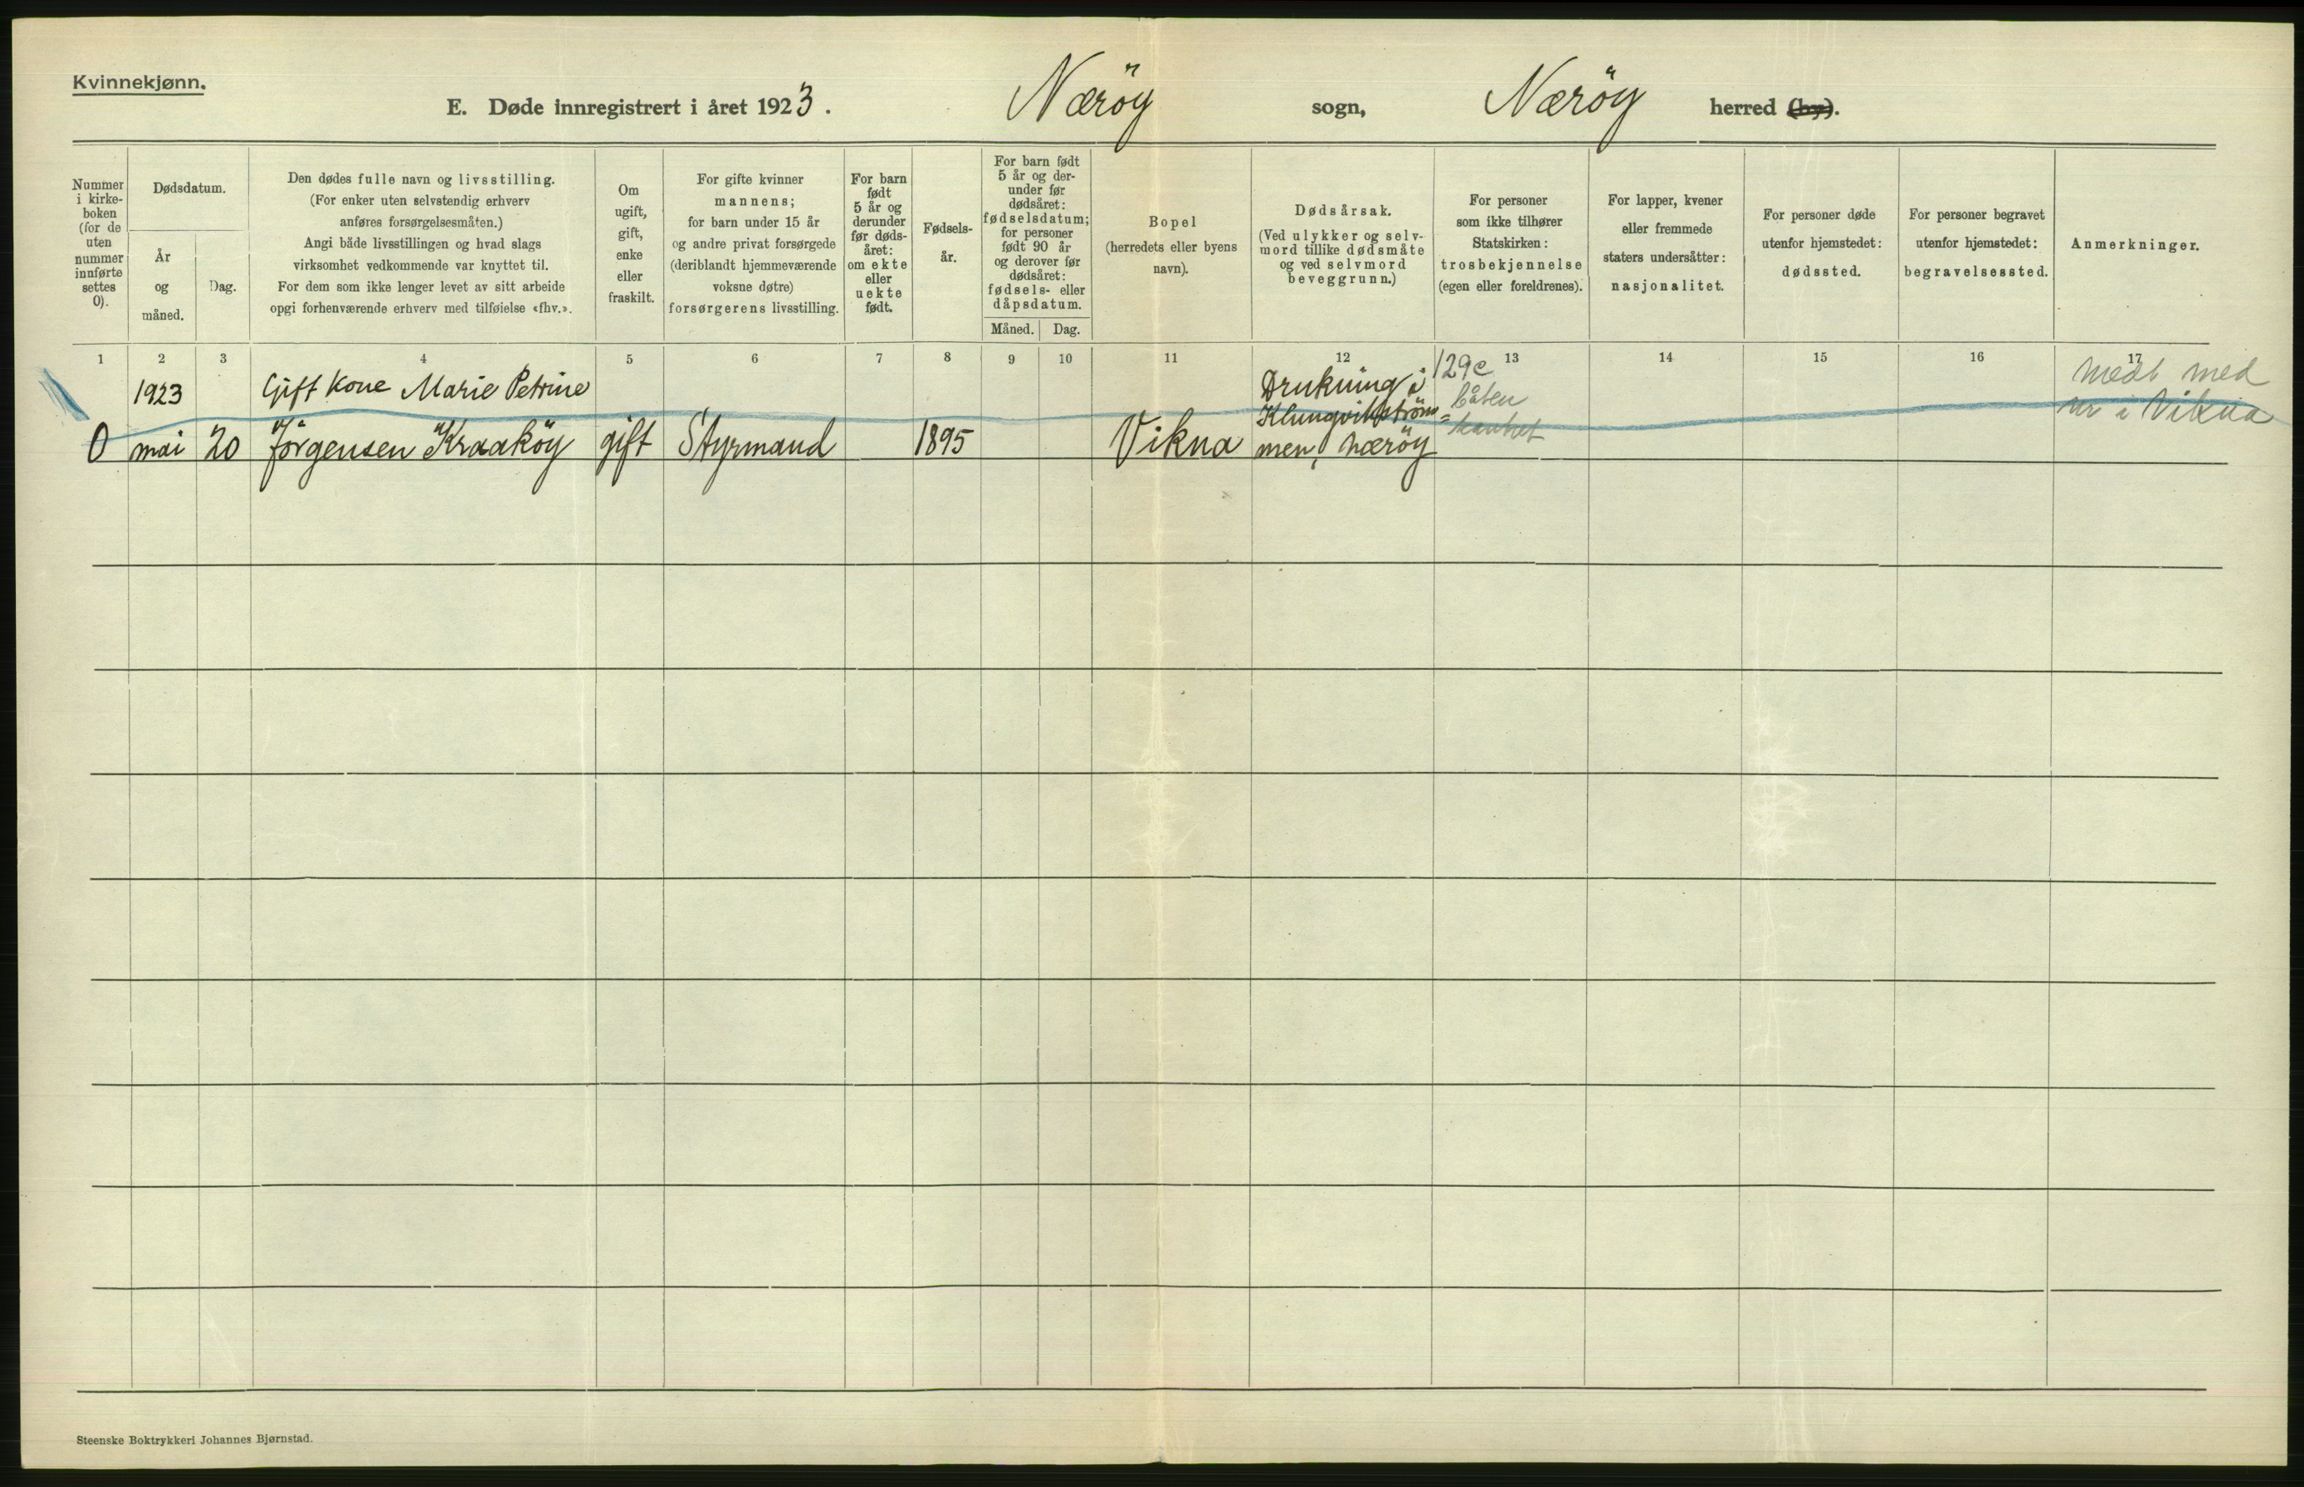 Kvinnekjønn.
E. Døde innregistrert i året 1923. Næröy sogn, Næröy herred (by).
Nummer
i kirke-
boken
(for de
uten
nummer
innførte
settes
0).
Dødsdatum.
År
og
måned.
Dag.
Den dødes fulle navn og livsstilling.
(For enker uten selvstendig erhverv
anføres forsørgelsesmåten.)
Angi både livsstillingen og hvad slags
virksomhet vedkommende var knyttet til.
For dem som ikke lenger levet av sitt arbeide
opgi forhenværende erhverv med tilføielse «fhv.».
Om
ugift,
gift,
enke
eller
fraskilt.
For gifte kvinner
mannens;
for barn under 15 år
og andre privat forsørgede
(deriblandt hjemmeværende
voksne døtre)
forsørgerens livsstilling.
For barn
født
5 år og
derunder
før døds-
året:
om ekte
eller
uekte
født.
Fødsels-
år.
For barn født
5 år og der-
under før
dødsåret:
fødselsdatum;
for personer
født 90 år
og derover før
dødsåret:
fødsels- eller
dåpsdatum.
Måned. Dag.
Bopel
(herredets eller byens
navn).
Dødsårsak.
(Ved ulykker og selv-
mord tillike dødsmåte
og ved selvmord
beveggrunn.)
For personer
som ikke tilhører
Statskirken:
trosbekjennelse
(egen eller foreldrenes).
For lapper, kvener
eller fremmede
staters undersåtter:
nasjonalitet.
For personer døde
utenfor hjemstedet:
dødssted.
For personer begravet
utenfor hjemstedet:
begravelsessted.
Anmerkninger.
1 2 3 4 5 6 7 8 9 10 11 12 13 14 15 16 17
1923 Gift Kone Marie Petrine
0 mai 20 Jörgensen Kraaköy gift Styrmand 1895 Vikna
Drukning i
Klungvikström=
men, Næröy
129c
båten
kantret
Medt med
nr i Vikna
Steenske Boktrykkeri Johannes Bjørnstad.